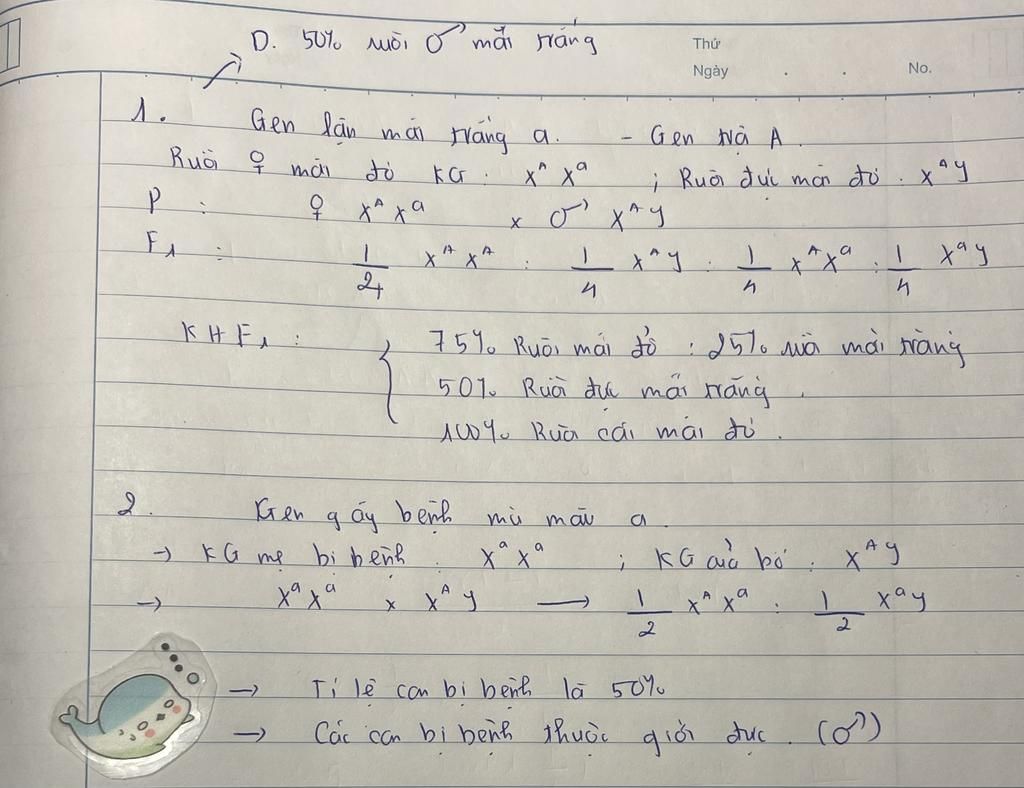 D. 50% ruồi ♂ mắt trắng
Thứ
Ngày . . No.
1. Gen lặn mắt trắng a. - Gen trội A.
Ruồi ♀ mắt đỏ KG: X^A X^a ; Ruồi đực mắt đỏ: X^A Y
P : ♀ X^A X^a x ♂ X^A Y
F1 : 1/4 X^A X^A : 1/4 X^A Y : 1/4 X^A X^a : 1/4 X^a Y
KH F1 : { 75% Ruồi mắt đỏ : 25% ruồi mắt trắng
50% Ruồi đực mắt trắng.
100% Ruồi cái mắt đỏ.
2. Gen gây bệnh mù màu a.
→ KG mẹ bị bệnh: X^a X^a ; KG của bố: X^A Y
→ X^a X^a x X^A Y → 1/2 X^A X^a : 1/2 X^a Y
→ Tỉ lệ con bị bệnh là 50%
→ Các con bị bệnh thuộc giới đực. (♂)